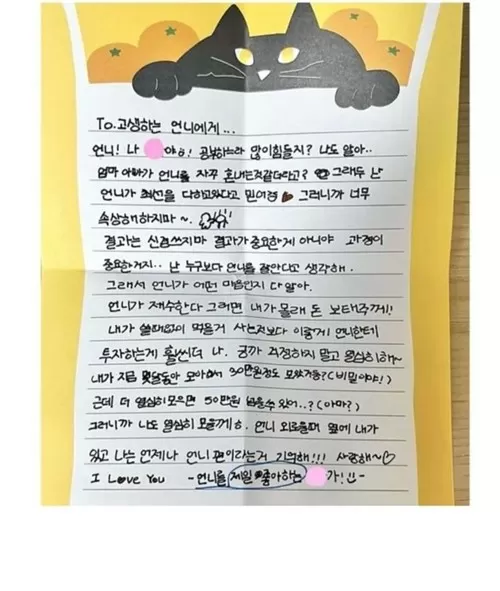 To.고생하는 언니에게...
언니! 나 야ㅎ! 공부하느라 많이힘들지? 나도 알아..
엄마 아빠가 언니를 자꾸 혼내는것같더라고? 그래두 난
언니가 최선을 다하고있다고 믿어정 그러니까 너무
속상해하지마~.
결과는 신경쓰지마 결과가중요한게 아니야 과정이
중요한거지.. 난 누구보다 언니를 잘안다고 생각해.
그래서 언니가 어떤 마음인지 다알아.
언니가 재수한다 그러면 내가몰래 돈 보태주께!!
내가 쓸떼없이 먹을거 사는것보다 이렇게 언니한테
투자하는게 훨씬더 나. 긍까 걱정하지 말고 열심히해~
내가 지금 몇달동안 모아서 30만원정도 모았거등?(비밀이야!)
근데 더 열심히모으면 50만원 넘을수 있어..?(아마?)
그러니까 나도 열심히 모을께ㅎ. 언니 외로울때 옆에 내가
있고 나는 언제나 언니 편이라는거 기억해!!! 사랑해~♡
I Love You -언니를 제일 좋아하는 가!!-